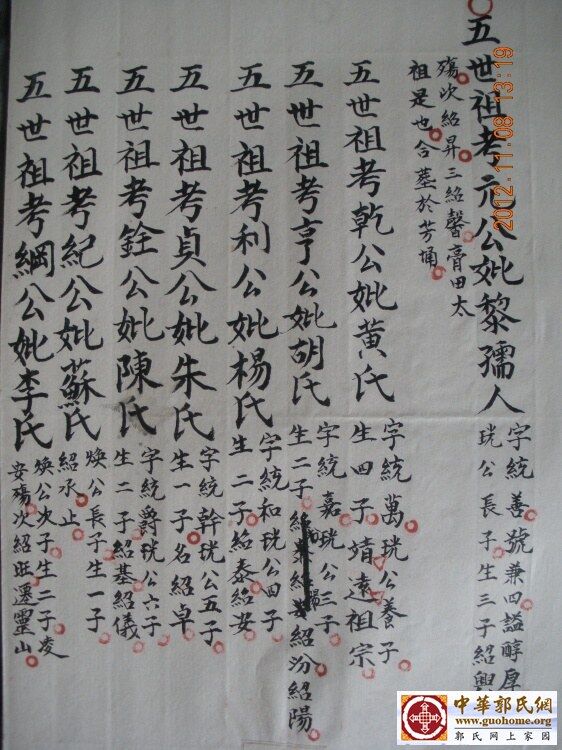 五世祖考元公妣黎孺人
字統善號兼四謚醇厚
珖公長子生三子紹興
殤次紹昇三紹馨膏田太
祖是也合墓於芳埇
五世祖考乾公妣黃氏
字統萬珖公養子
生四子靖遠祖宗
五世祖考亨公妣胡氏
字統嘉珖公三子
生二子紹汾紹陽
五世祖考利公妣楊氏
字統和珖公四子
生二子紹泰紹安
五世祖考貞公妣朱氏
字統幹珖公五子
生一子名紹卓
五世祖考銓公妣陳氏
字統爵珖公六子
生二子紹基紹儀
五世祖考紀公妣蘇氏
煥公長子生一子
紹承止
五世祖考綱公妣李氏
煥公次子生二子凌
安殤次紹旺遷靈山
2012.11.08 13:19
中華郭氏網
www.guohome.org
郭氏网上家园